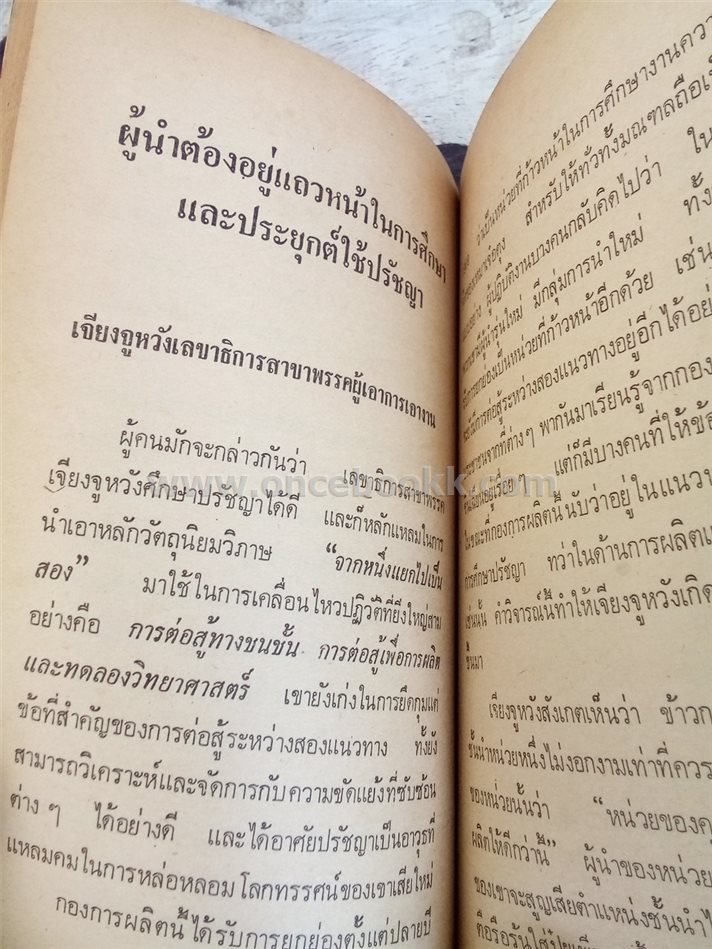 ผู้นำต้องอยู่แถวหน้าในการศึกษา
และประยุกต์ใช้ปรัชญา
เจียงจูหวังเลขาธิการสาขาพรรคผู้เอาการเอางาน
ผู้คนมักจะกล่าวกันว่า เลขาธิการสาขาพรรค
เจียงจูหวังศึกษาปรัชญาได้ดี และก็หลักแหลมในการ
นำเอาหลักวัตถุนิยมวิภาษ "จากหนึ่งแยกไปเป็น
สอง" มาใช้ในการเคลื่อนไหวปฏิวัติที่ยิ่งใหญ่สาม
อย่างคือ การต่อสู้ทางชนชั้น การต่อสู้เพื่อการผลิต
และทดลองวิทยาศาสตร์ เขายังเก่งในการยึดกุมแต่
ข้อที่สำคัญของการต่อสู้ระหว่างสองแนวทาง ทั้งยัง
สามารถวิเคราะห์และจัดการกับความขัดแย้งที่ซับซ้อน
ต่างๆ ได้อย่างดี และได้อาศัยปรัชญาเป็นอาวุธที่
แหลมคมในการหล่อหลอมโลกทรรศน์ของเขาเสียใหม่
กองการผลิตนี้ได้รับการยกย่องตั้งแต่ปลายปี
ว่าเป็นหน่วยที่ก้าวหน้าในการศึกษางานความ
สำหรับให้ทั่วทั้งมณฑลถือเป็
ผู้ปฏิบัติงานบางคนกลับคิดไปว่า ใน
ผู้นำรุ่นใหม่ มีกลุ่มการนำใหม่ ทั้ง
เป็นหน่วยที่ก้าวหน้าอีกด้วย เช่น
การต่อสู้ระหว่างสองแนวทางอยู่อีกได้อย่
จากที่ต่างๆ พากันมาเรียนรู้จากกอง
แต่ก็มีบางคนที่ให้ข้อ
ในขณะที่กองการผลิตนี้นับว่าอยู่ในแนวห
การศึกษาปรัชญา ทว่าในด้านการผลิตแ
เช่นนั้น คำวิจารณ์นี้ทำให้เจียงจูหวังเกิด
ขึ้นมา
เจียงจูหวังสังเกตเห็นว่า ข้าวก
ชั้นนำหน่วยหนึ่งไม่งอกงามเท่าที่ควร
ของหน่วยนั้นว่า "หน่วยของคุ
ผลิตให้ดีกว่านี้" ผู้นำของหน่วย
ของเขาจะสูญเสียตำแหน่งชั้นนำไ
www.oncebookk.com